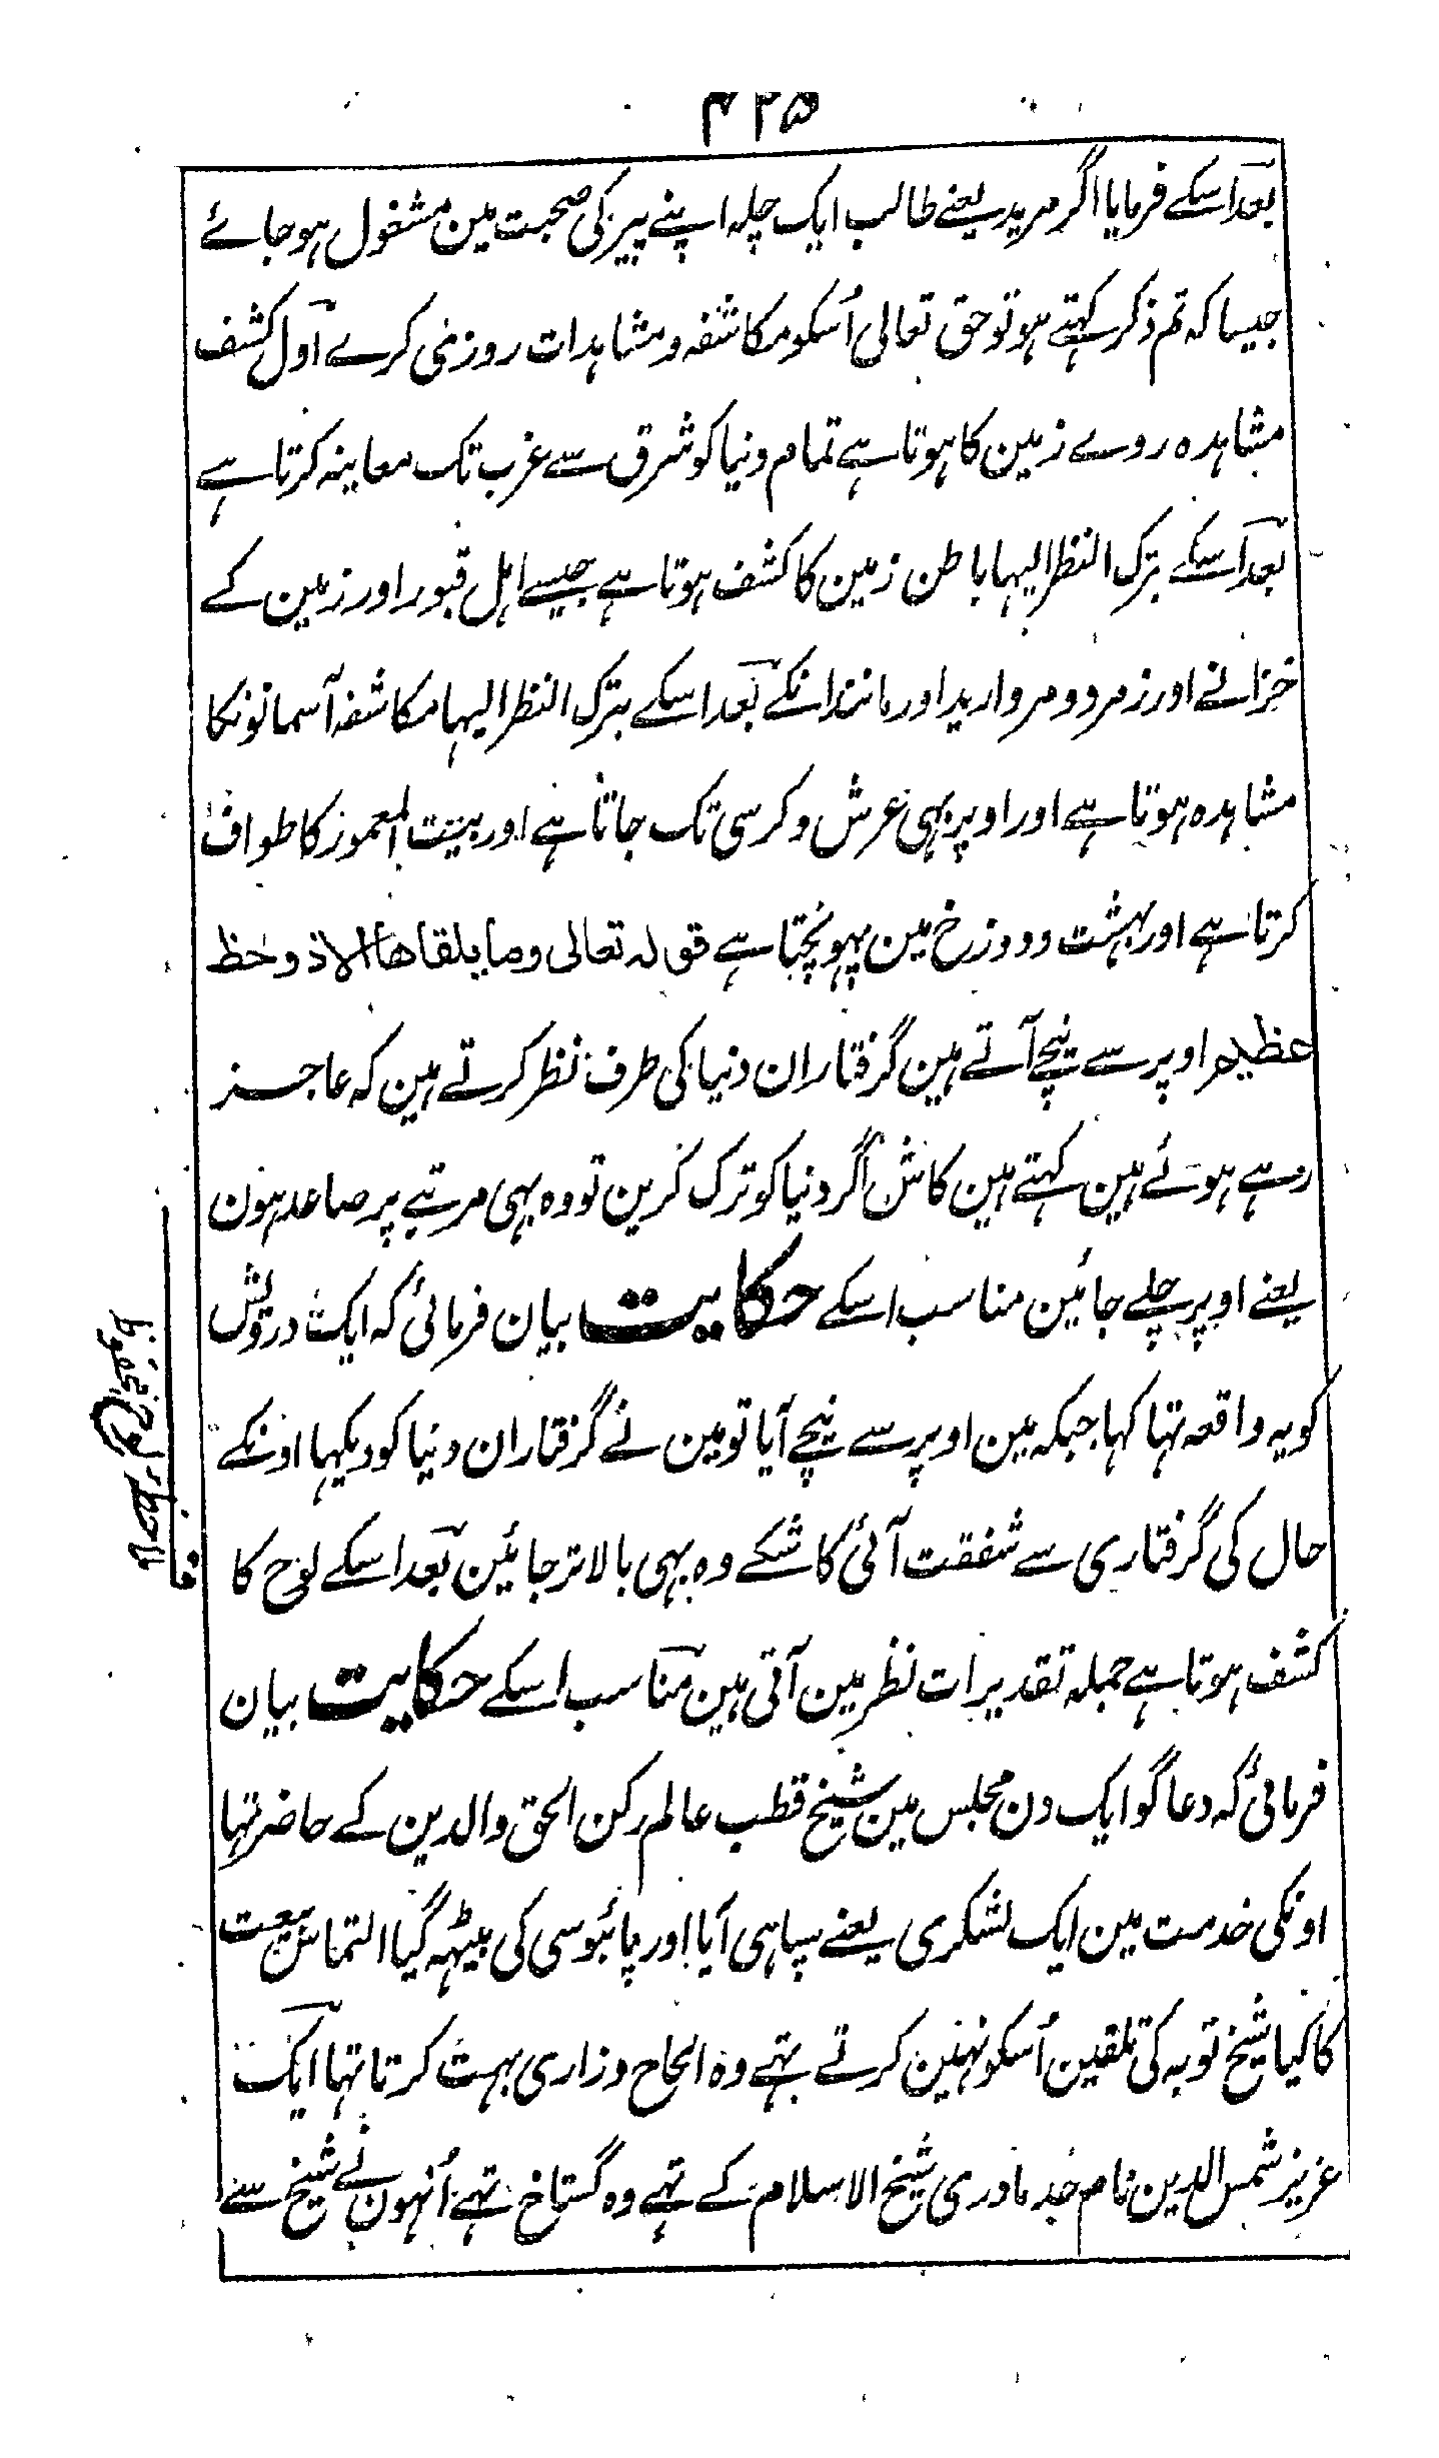 ۴۲۵
بعد اسکے فرمایا اگر مرید یعنے طالب ایک چلہ اپنے پیر کی صحبت مین مشغول ہو جائے
جیسا کہ تم ذکر کہتے ہو تو حق تعالی اُسکو مکاشفہ و مشاہدات روزی کرے اول کشف
مشاہدہ روے زمین کا ہوتا ہے تمام دنیا کو شرق سے غرب تک معاینہ کرتا ہے
بعد اسکے بترک النظر الیہا باطن زمین کا کشف ہوتا ہے جیسے اہل قبور اور زمین کے
خزانے اور زمرد و مروارید اور مانند انکے بعد اسکے بترک النظر الیہا مکاشفہ آسمانونکا
مشاہدہ ہوتا ہے اور اوپر بہی عرش و کرسی تک جاتا ہے اور بیت المعمور کا طواف
کرتا ہے اور بہشت و دوزخ مین پہونچتا ہے قولہ تعالی وما یلقاھا الا ذو حظ
عظیم اوپر سے نیچے آتے ہین گرفتاران دنیا کی طرف نظر کرتے ہین کہ عاجز
رہے ہوئے ہین کہتے ہین کاش اگر دنیا کو ترک کرین تو وہ بہی مرتبے پر صاعد ہون
یعنے اوپر چلے جائین مناسب اسکے حکایت بیان فرمائی کہ ایک درویش
کو یہ واقعہ تہا کہا جبکہ مین اوپر سے نیچے آیا تو مین نے گرفتاران دنیا کو دیکہا اونکے
حال کی گرفتاری سے شفقت آئی کاشکے وہ بہی بالاتر جائین بعد اسکے لوح کا
کشف ہوتا ہے جملہ تقدیرات نظر مین آتی ہین مناسب اسکے حکایت بیان
فرمائی کہ دعاگو ایک دن مجلس مین شیخ قطب عالم رکن الحق والدین کے حاضر تہا
اونکی خدمت مین ایک لشکری یعنے سپاہی آیا اور پائبوسی کی بیٹہہ گیا التماس بیعت
کا کیا شیخ توبہ کی تلقین اُسکو نہین کرتے تہے وہ الحاح و زاری بہت کرتا تہا ایک
عزیز شمس الدین نام جد مادری شیخ الاسلام کے تہے وہ گستاخ تہے اُنہون نے شیخ سے